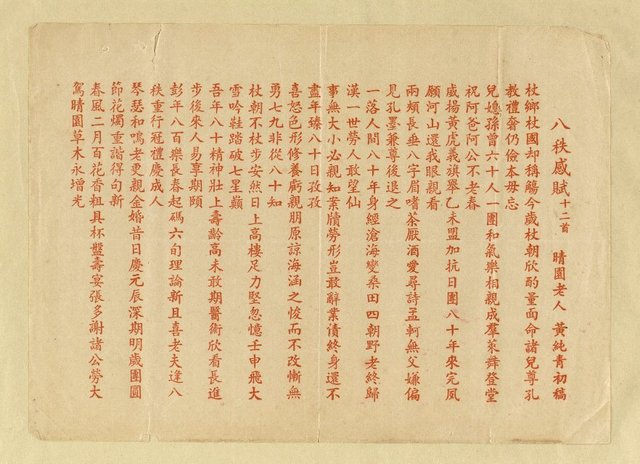 八秩感賦十二首　晴園老人　黃純青初稿
杖鄉杖國却稱觴今歲杖朝欣酌量面命諸兒尊孔
教禮奢仍儉本毋忘
兒媳孫曾六十人一團和氣樂相親成羣萊舞登堂
祝阿爸阿公不老春
威揚黃虎義旗舉乙未盟加抗日團八十年來完夙
願河山還我眼親看
兩頰長垂八字眉嗜茶厭酒愛尋詩孟軻無父嫌偏
見孔墨兼尊後退之
一落人間八十年身經滄海變桑田四朝野老終歸
漢一世勞人敢望仙
事無大小必親知案牘勞形豈敢辭業債終身還不
盡年臻八十日孜孜
喜怒色形修養虧親朋原諒海涵之悛而不改慚無
勇七九非從八十知
杖朝不杖步安然日上高樓足力堅忽憶壬申飛大
雪吟鞋踏破七星巔
吾年八十精神壯上壽齡高未敢期醫術欣看長進
步後來人易享期頤
彭年八百樂長春起碼六旬理論新且喜老夫逢八
秩重行冠禮慶成人
琴瑟和鳴老更親金婚昔日慶元辰深期明歲團圓
節花燭重諧得句新
春風二月百花香粗具杯盤壽宴張多謝諸公勞大
駕晴園草木永增光